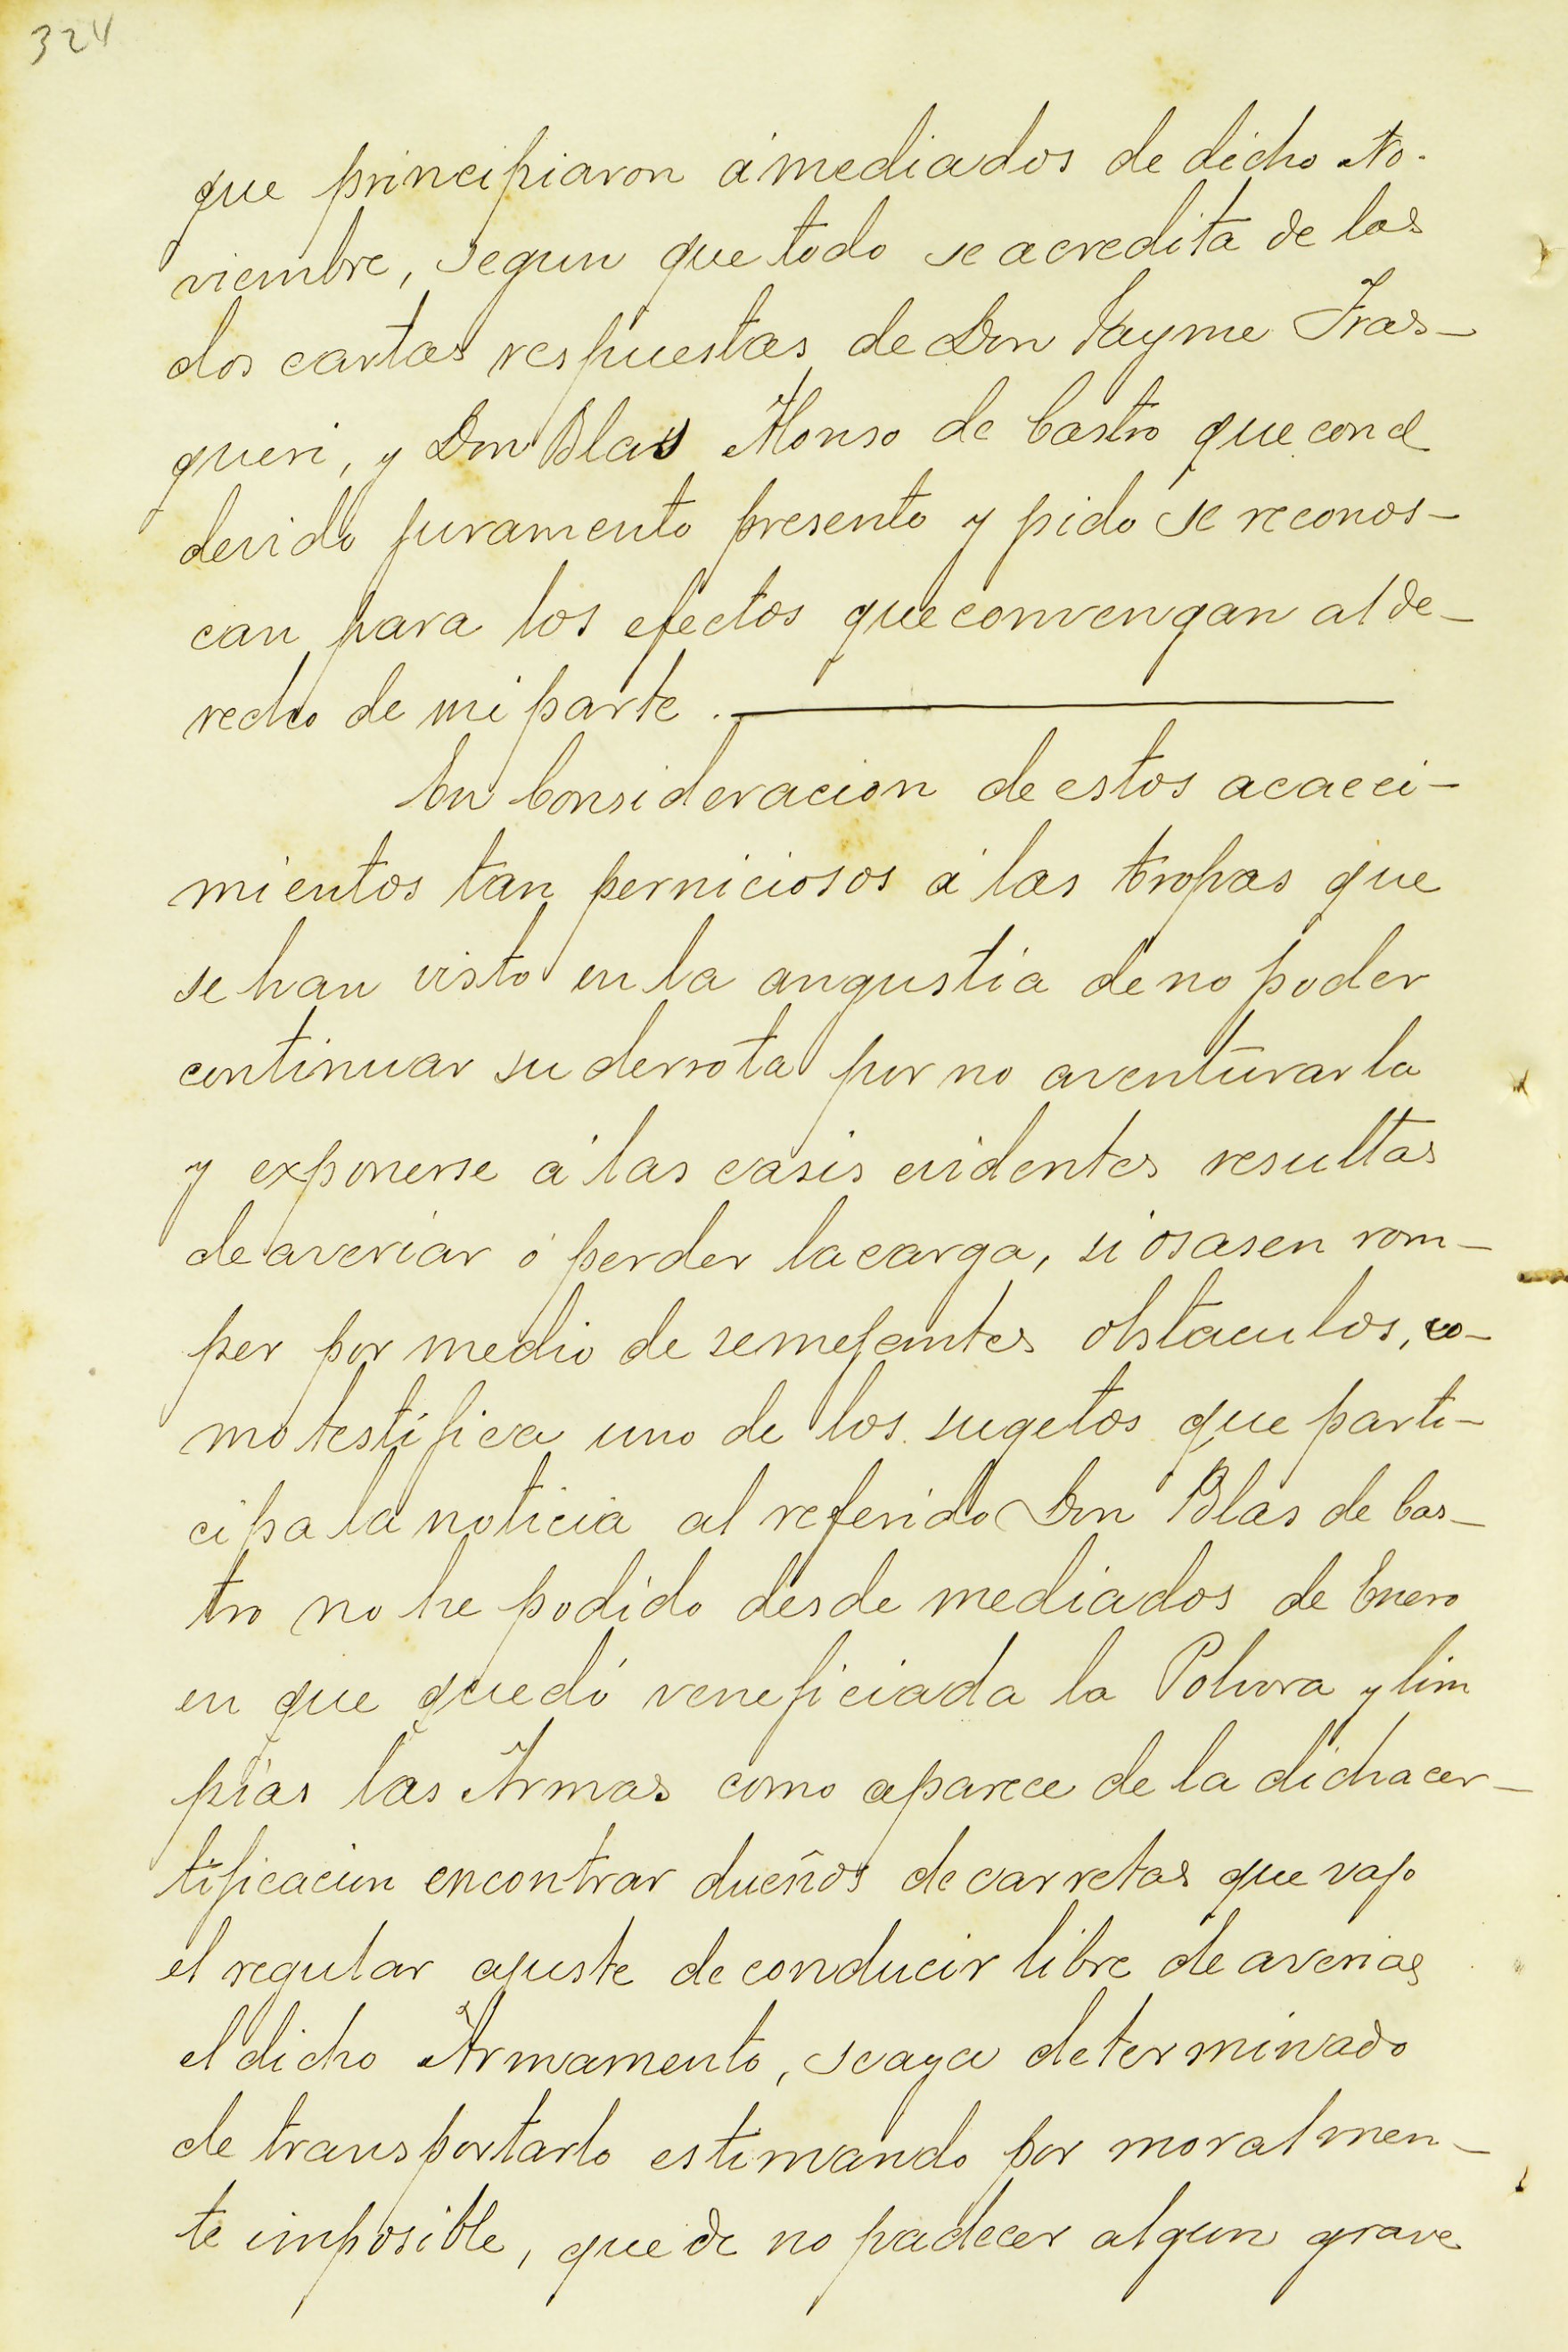 324
que principiaron á mediados de dicho No-
viembre, segun que todo se acredita de las
dos cartas respuestas de Don Jayme Fras-
queri, y Don Blas Alonso de Castro que con el
devido juramento presento y pido se reconos-
can para los efectos que convengan al de-
recho de mi parte.
En Consideracion de estos acaeci-
mientos tan perniciosos á las tropas que
se han visto en la angustia de no poder
continuar su derrota por no aventurarla
y exponerse á las casis evidentes resultas
de averiar ó perder la carga, si osasen rom-
per por medio de semejantes obstaculos, co-
mo testifica uno de los sugetos que parti-
cipa la noticia al referido Don Blas de Cas-
tro no he podido desde mediados de Enero
en que quedó veneficiada la Polvora y lim
pias las Armas como aparece de la dicha cer-
tificacion encontrar dueños de carretas que vajo
el regular ajuste de conducir libre de averias
el dicho Armamento, se aya determinado
de transportarlo estimando por moralmen-
te imposible, que de no padecer algun grave